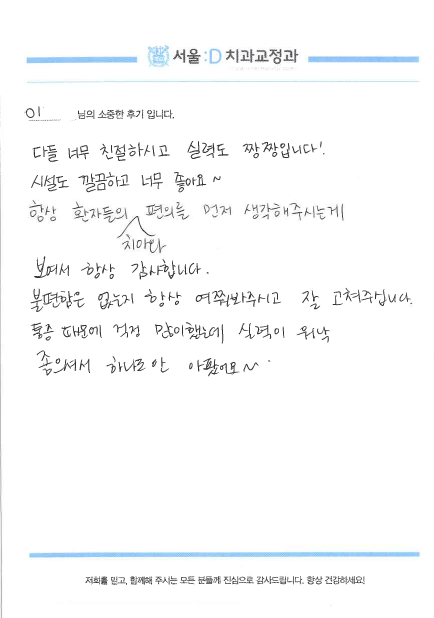 서울:D치과교정과
이 님의 소중한 후기 입니다.
다들 너무 친절하시고 실력도 짱짱입니다!
시설도 깔끔하고 너무 좋아요~
항상 환자들의 편의를 먼저 생각해주시는게
치아와
보여서 항상 감사합니다.
불편함은 없는지 항상 여쭤봐주시고 잘 고쳐주십니다.
통증 때문에 걱정 많이했는데 실력이 워낙
좋으셔서 하나도 안 아팠어요~
저희를 믿고, 함께해 주시는 모든 분들께 진심으로 감사드립니다. 항상 건강하세요!